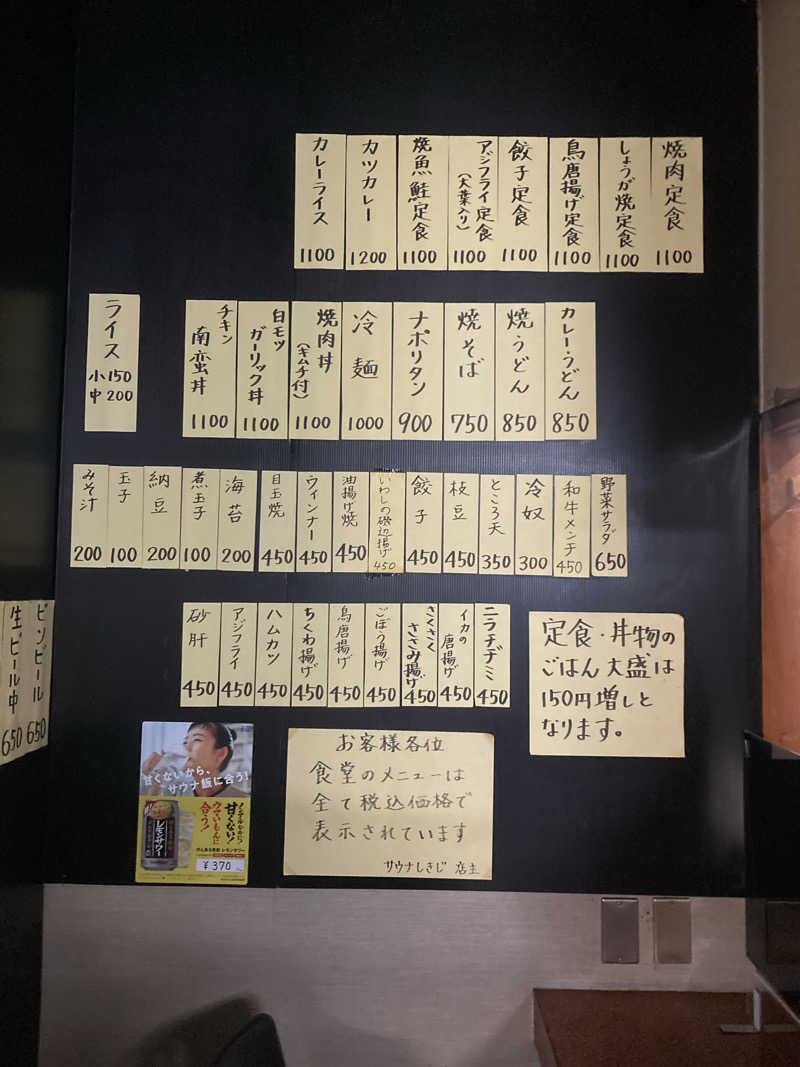 焼肉定食 1100
しょうが焼定食 1100
鳥唐揚げ定食 1100
餃子定食 1100
アジフライ定食 (大葉入り) 1100
焼魚鮭定食 1100
カツカレー 1200
カレーライス 1100
カレーうどん 850
焼うどん 850
焼そば 750
ナポリタン 900
冷麺 1000
焼肉丼 (キムチ付) 1100
白モツ ガーリック丼 1100
チキン 南蛮丼 1100
ライス
小 150
中 200
野菜サラダ 650
和牛メンチ 450
冷奴 300
ところ天 350
枝豆 450
餃子 450
いわしの磯辺揚げ 450
油揚げ焼 450
ウィンナー 450
目玉焼 450
海苔 200
煮玉子 100
納豆 200
玉子 100
みそ汁 200
ニラチヂミ 450
イカの唐揚げ 450
さくさくささみ揚げ 450
ごぼう揚げ 450
鳥唐揚げ 450
ちくわ揚げ 450
ハムカツ 450
アジフライ 450
砂肝 450
ビンビール 650
生ビール中 650
定食・丼物の
ごはん大盛は
150円増しと
なります。
お客様各位
食堂のメニューは
全て税込価格で
表示されています
サウナしきじ 店主
甘くないから、
サウナ飯に合う!
甘くない!
合う!
レモンサワー
¥370